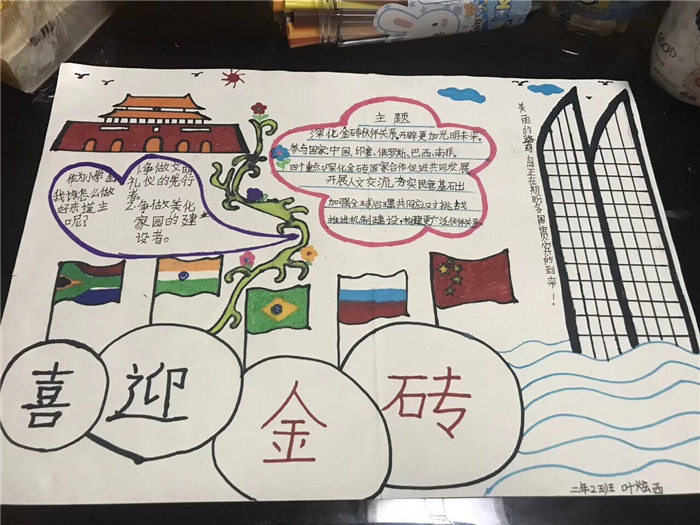 主题
深化金砖伙伴关系开辟更加光明未来。
参与国家:中国、印度、俄罗斯、巴西、南非。
四个重点:深化金砖国家合作促进共同发展
开展人文交流,夯实民意基石出
加强全球治理共同应对挑战
推进机制建设,构建更广泛伙伴关系
作为小学生
我该怎么做
好东道主
呢?
1.争做文明
礼仪的先行
者。
2.争做美化
家园的建
设者。
美丽的鹭岛
各国贵宾的到来!
喜迎金砖
二年2班